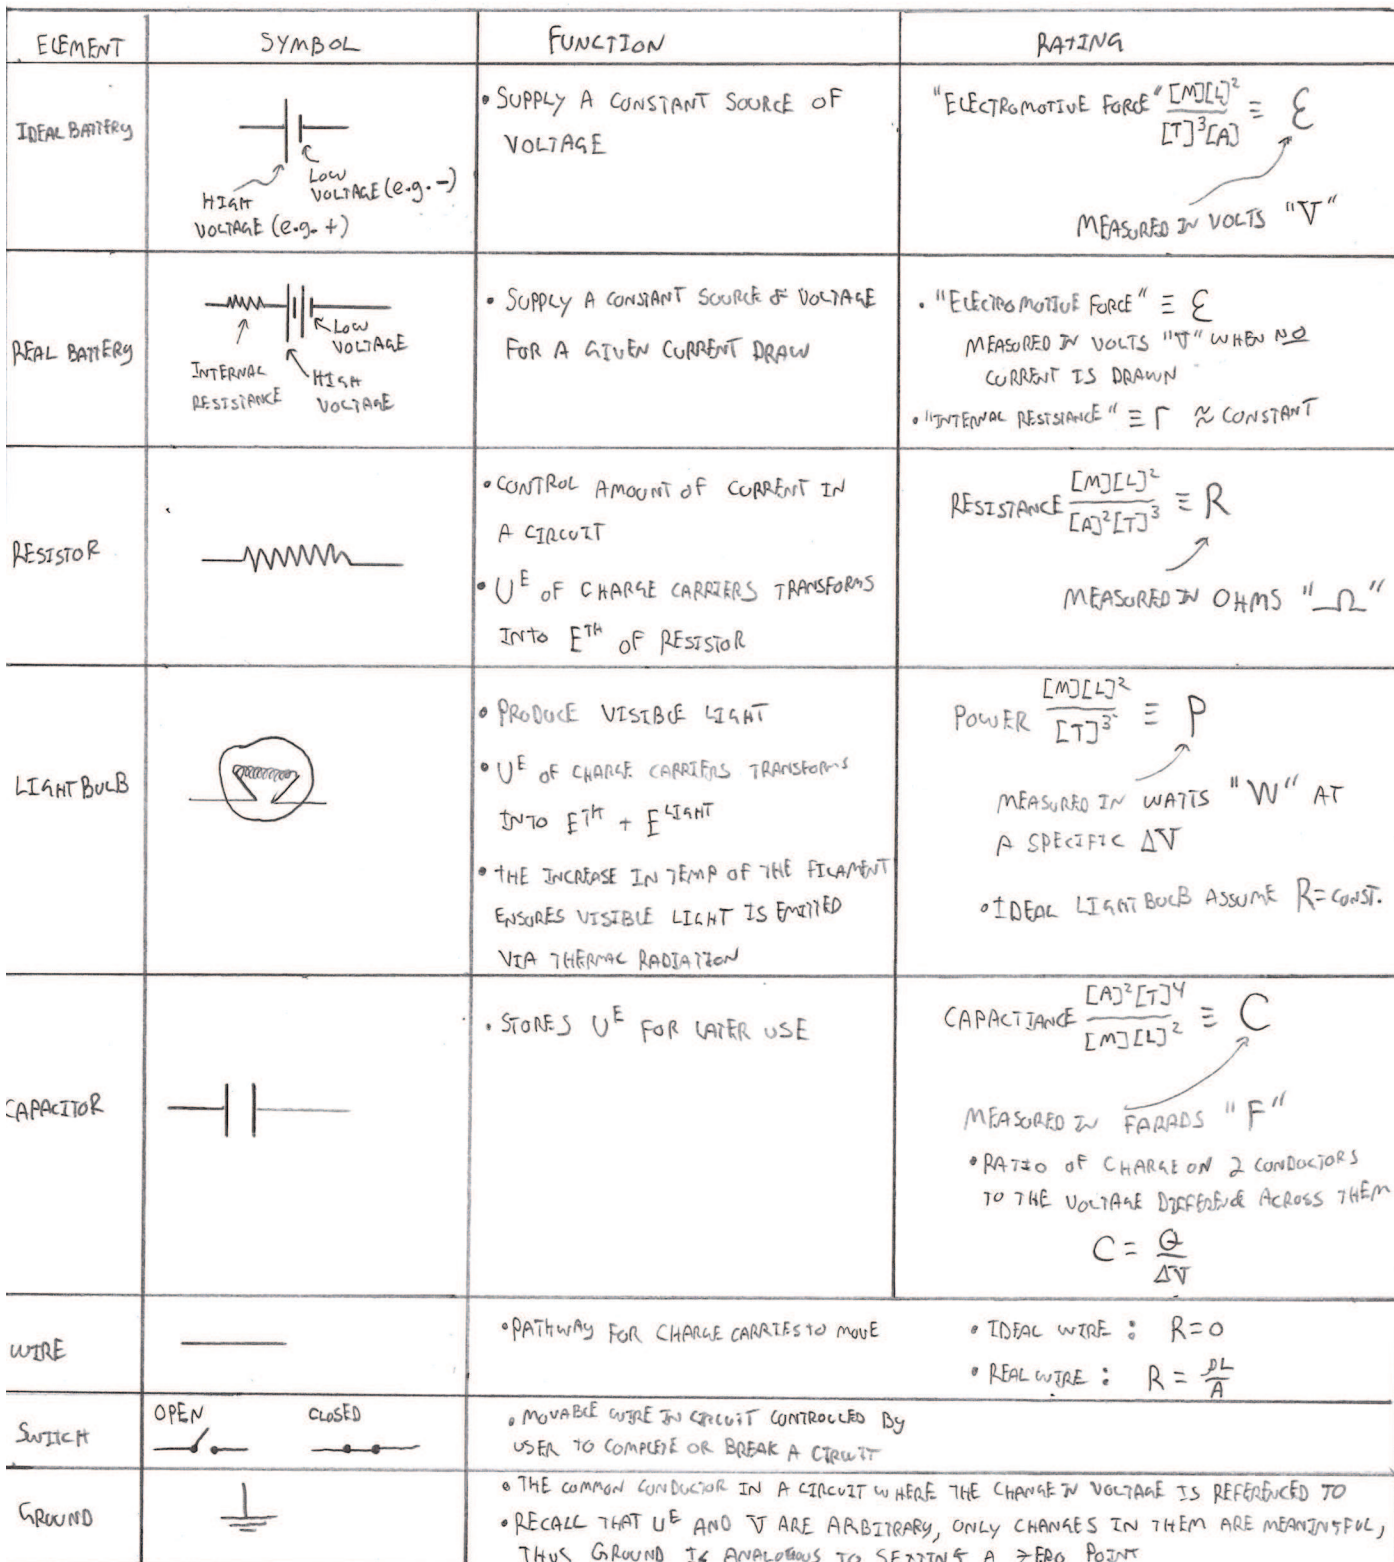 ELEMENT
SYMBOL
FUNCTION
RATING
IDEAL BATTERY
HIGH
VOLTAGE (e.g. +)
LOW
VOLTAGE (e.g. -)
• SUPPLY A CONSTANT SOURCE OF
VOLTAGE
"ELECTROMOTIVE FORCE" [M][L]²/[T]³[A] ≡ ℰ
MEASURED IN VOLTS "V"
REAL BATTERY
INTERNAL
RESISTANCE
LOW
VOLTAGE
HIGH
VOLTAGE
• SUPPLY A CONSTANT SOURCE OF VOLTAGE
FOR A GIVEN CURRENT DRAW
• "ELECTROMOTIVE FORCE" ≡ ℰ
MEASURED IN VOLTS "V" WHEN NO
CURRENT IS DRAWN
• "INTERNAL RESISTANCE" ≡ r ≈ CONSTANT
RESISTOR
• CONTROL AMOUNT OF CURRENT IN
A CIRCUIT
• U^E OF CHARGE CARRIERS TRANSFORMS
INTO E^TH OF RESISTOR
RESISTANCE [M][L]²/[A]²[T]³ ≡ R
MEASURED IN OHMS "Ω"
LIGHT BULB
• PRODUCE VISIBLE LIGHT
• U^E OF CHARGE CARRIERS TRANSFORMS
INTO E^TH + E^LIGHT
• THE INCREASE IN TEMP OF THE FILAMENT
ENSURES VISIBLE LIGHT IS EMITTED
VIA THERMAL RADIATION
POWER [M][L]²/[T]³ ≡ P
MEASURED IN WATTS "W" AT
A SPECIFIC ΔV
• IDEAL LIGHT BULB ASSUME R = CONST.
CAPACITOR
• STORES U^E FOR LATER USE
CAPACTIANCE [A]²[T]⁴/[M][L]² ≡ C
MEASURED IN FARADS "F"
• RATIO OF CHARGE ON 2 CONDUCTORS
TO THE VOLTAGE DIFFERENCE ACROSS THEM
C = Q/ΔV
WIRE
• PATHWAY FOR CHARGE CARRIES TO MOVE
• IDEAL WIRE : R = 0
• REAL WIRE : R = ρL/A
SWITCH
OPEN
CLOSED
• MOVABLE WIRE IN CIRCUIT CONTROLLED BY
USER TO COMPLETE OR BREAK A CIRCUIT
GROUND
• THE COMMON CONDUCTOR IN A CIRCUIT WHERE THE CHANGE IN VOLTAGE IS REFERENCED TO
• RECALL THAT U^E AND V ARE ARBITRARY, ONLY CHANGES IN THEM ARE MEANINGFUL,
THUS GROUND IS ANALOGOUS TO SETTING A ZERO POINT